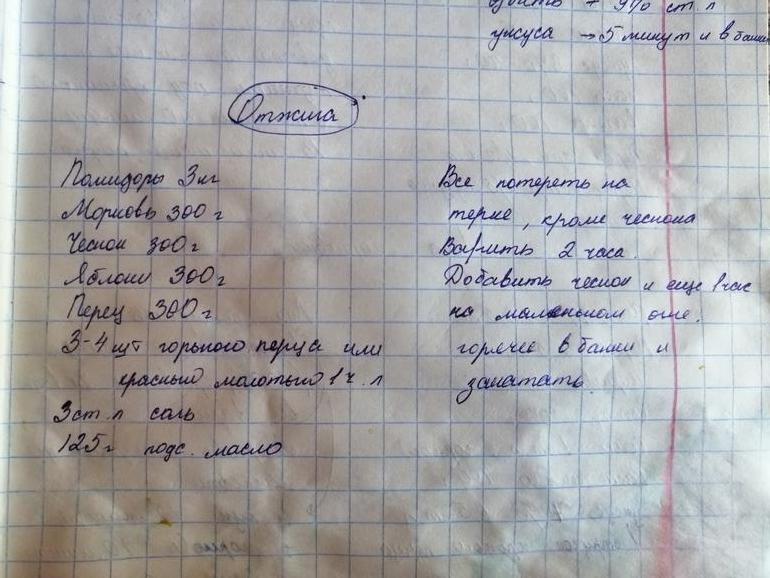 + 9% ст. л
уксуса → 5 минут и в банки
Отжига
Помидоры 3кг
Морковь 300 г
Чеснок 300 г
Яблоки 300 г
Перец 300 г
3-4 шт горького перца или
красный молотый 1 ч. л
3 ст. л соль
125 г подс. масло
Все потереть на
терке, кроме чеснока
Варить 2 часа.
Добавить чеснок и еще 1 час
на маленьком огне.
горячее в банки и
закатать.